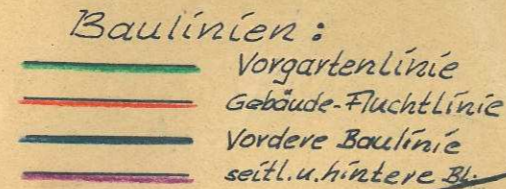 Baulinien:
Vorgartenlinie
Gebäude-Fluchtlinie
Vordere Baulinie
seitl.u.hintere Bl.